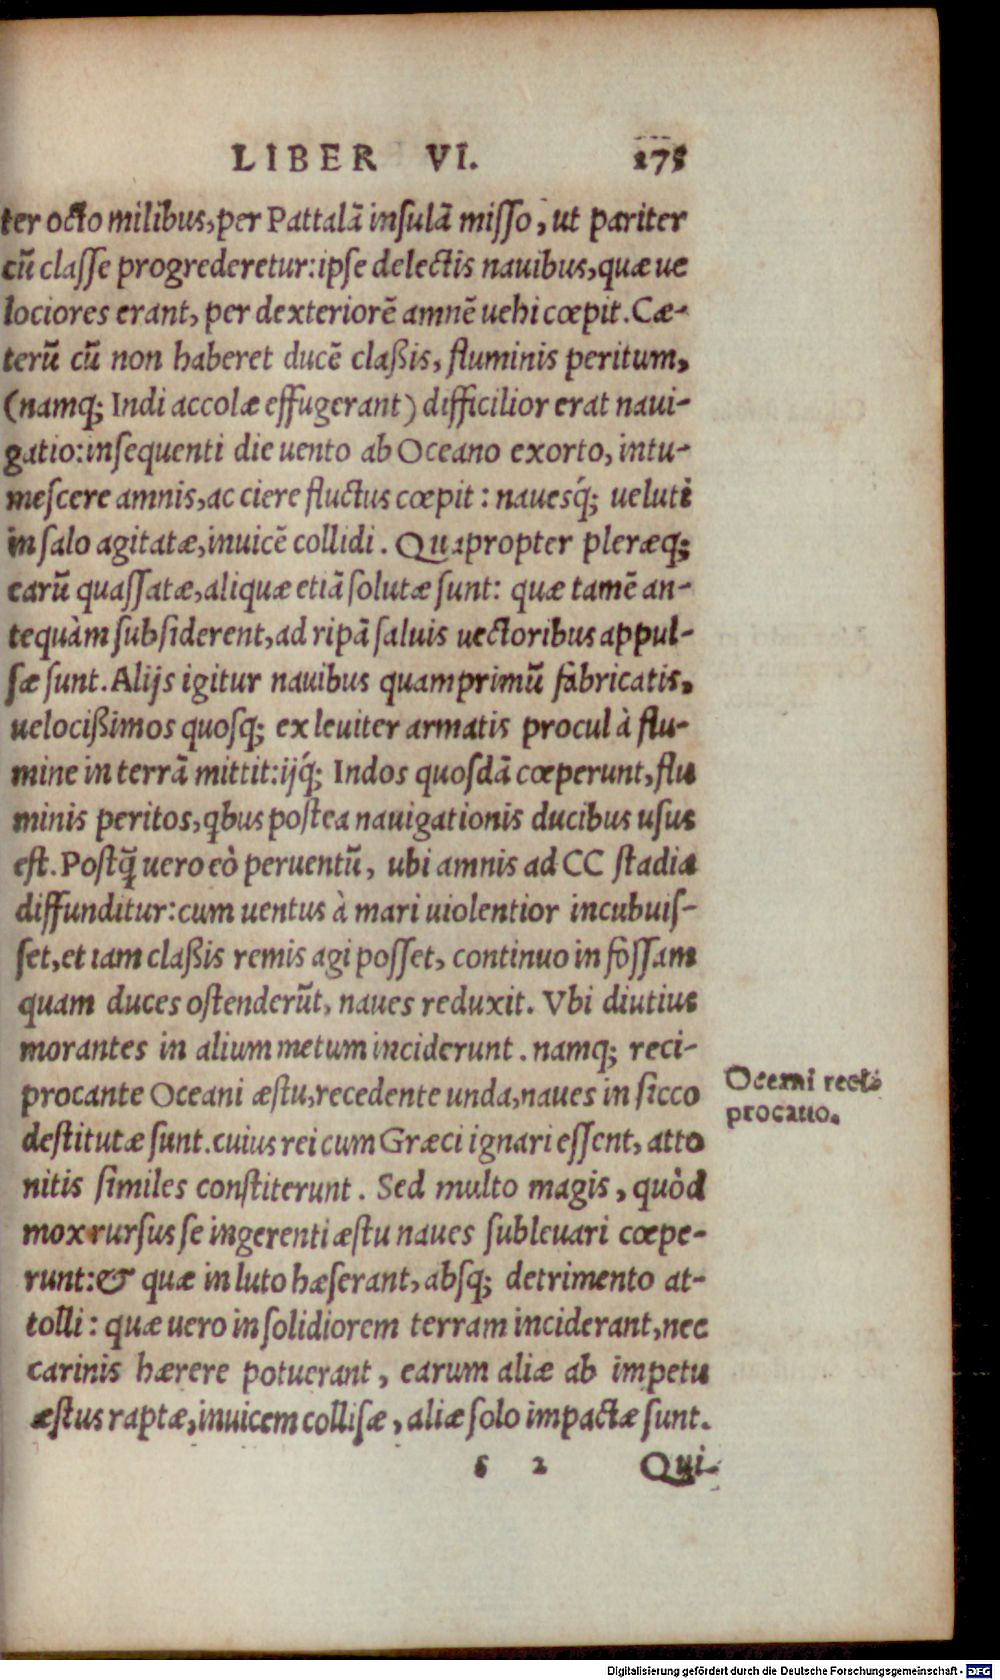 LIBER VI. 275
ter octo milibus, per Pattalā insulā misso, ut pariter
cū classe progrederetur: ipse delectis nauibus, quæ ue
lociores erant, per dexteriorē amnē uehi cœpit. Cæ-
terū cū non haberet ducē claßis, fluminis peritum,
(namq; Indi accolæ effugerant) difficilior erat naui-
gatio: insequenti die uento ab Oceano exorto, intu-
mescere amnis, ac ciere fluctus cœpit: nauesq́; ueluti
in salo agitatæ, inuicē collidi. Quapropter pleræq;
earū quassatæ, aliquæ etiā solutæ sunt: quæ tamē an-
tequàm subsiderent, ad ripā saluis uectoribus appul-
sæ sunt. Alijs igitur nauibus quamprimū fabricatis,
uelocißimos quosq; ex leuiter armatis procul à flu-
mine in terrā mittit: ijq́; Indos quosdā cœperunt, flu
minis peritos, qbus postea nauigationis ducibus usus
est. Postq̄ uero eò peruentū, ubi amnis ad CC stadia
diffunditur: cum uentus à mari uiolentior incubuis-
set, et iam claßis remis agi posset, continuo in fossam
quam duces ostenderūt, naues reduxit. Vbi diutius
morantes in alium metum inciderunt. namq; reci-
procante Oceani æstu, recedente unda, naues in sicco
destitutæ sunt. cuius rei cum Græci ignari essent, atto
nitis similes constiterunt. Sed multo magis, quòd
mox rursus se ingerenti æstu naues subleuari cœpe-
runt: & quæ in luto hæserant, absq; detrimento at-
tolli: quæ uero in solidiorem terram inciderant, nec
carinis hærere potuerant, earum aliæ ab impetu
æstus raptæ, inuicem collisæ, aliæ solo impactæ sunt.
s 2 Qui-
Oceani reci-
procatio.
Digitalisierung gefördert durch die Deutsche Forschungsgemeinschaft - DFG